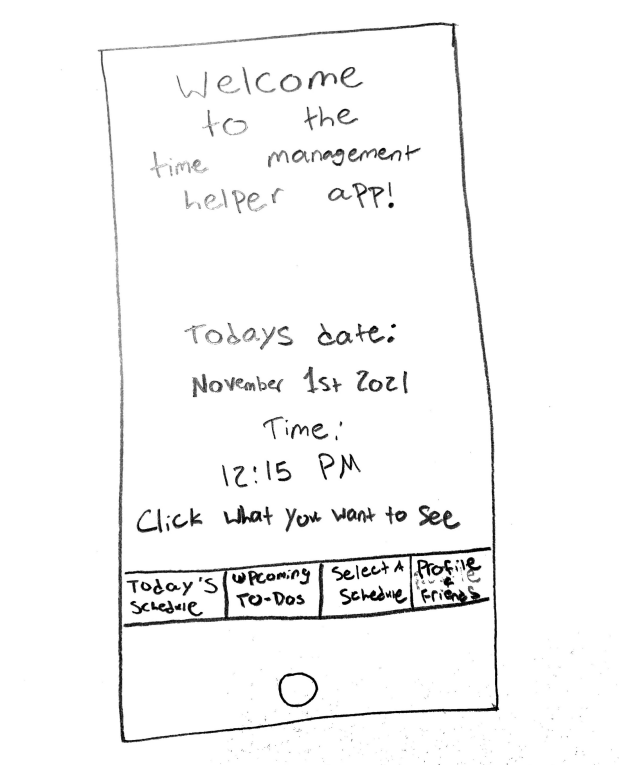 Welcome
to the
time management
helper app!
Todays date:
November 1st 2021
Time:
12:15 PM
Click what you want to see
Today's
Schedule
Upcoming
TO-DOS
Select A
Schedule
Profile
+
Friends